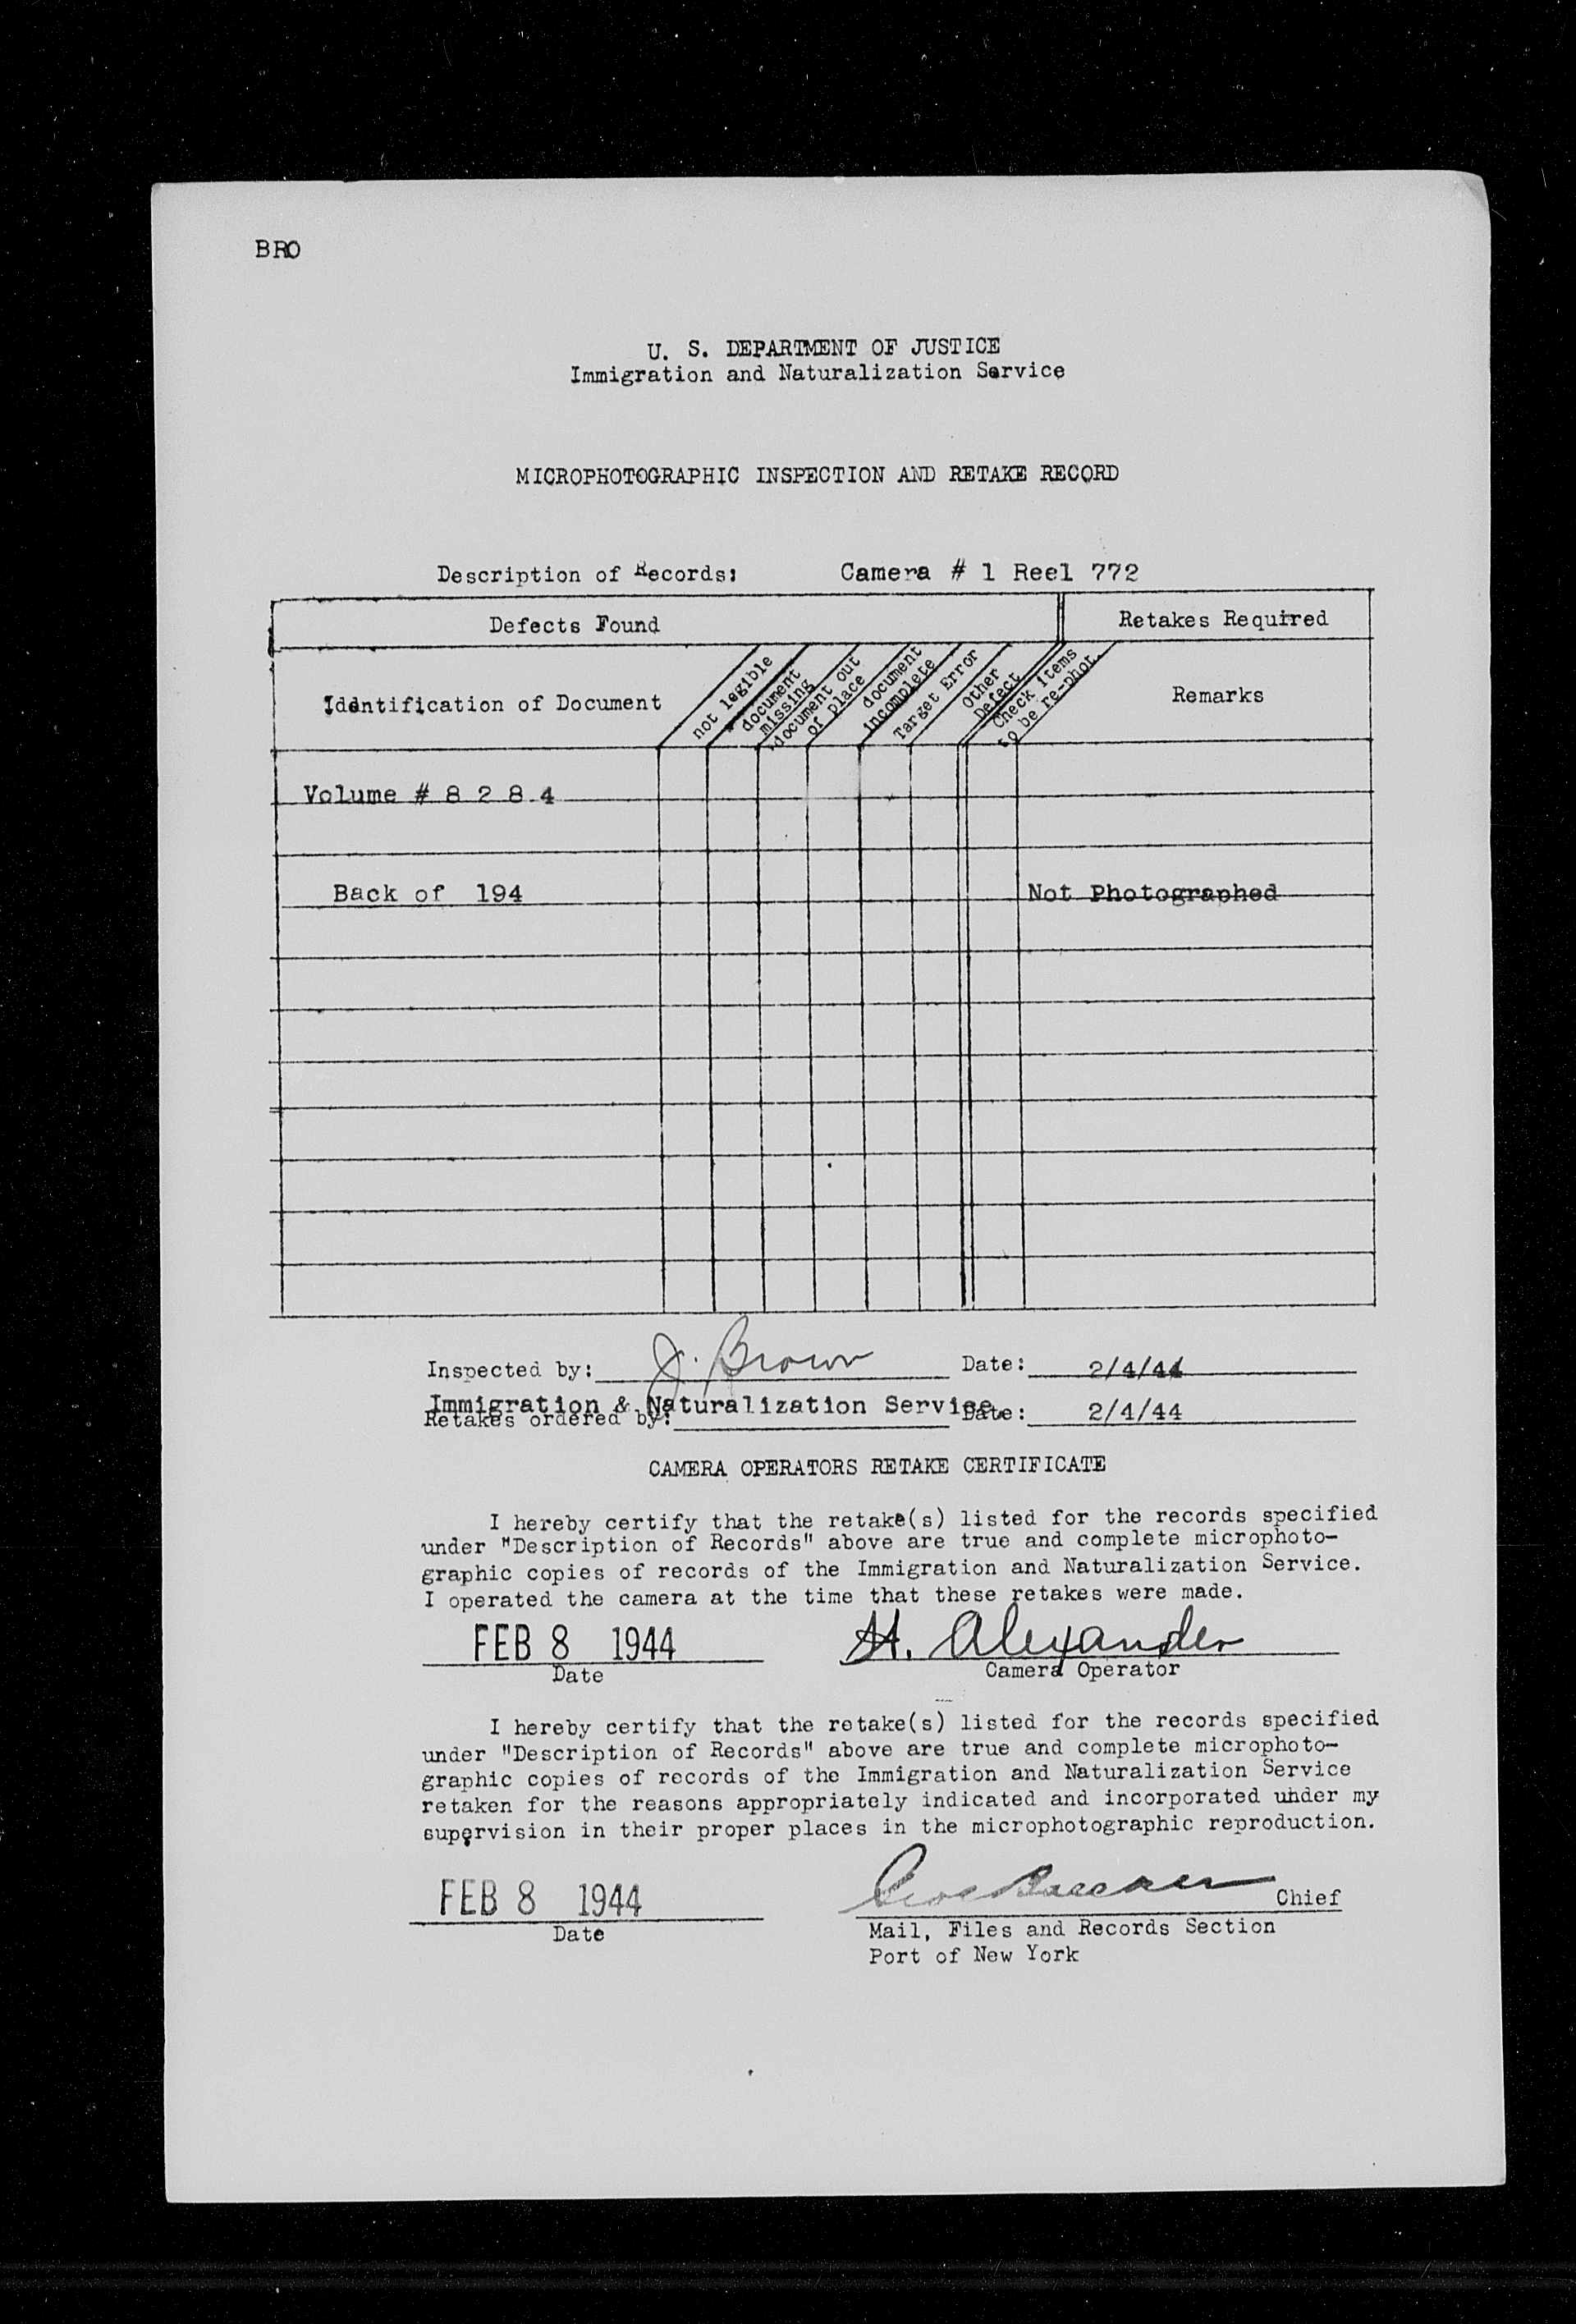 BRO
U. S. DEPARTMENT OF JUSTICE
Immigration and Naturalization Service
MICROPHOTOGRAPHIC INSPECTION AND RETAKE RECORD
Description of Records: Camera # 1 Reel 772
Defects Found Retakes Required
Identification of Document
not legible
document
missing
document out
of place
document
incomplete
Target Error
Other
Defect
Check items
to be re-phot.
Remarks
Volume # 8 2 8 4
Back of 194 Not Photographed
Inspected by: J. Brown Date: 2/4/44
Immigration & Naturalization Service
Retakes ordered by: Date: 2/4/44
CAMERA OPERATORS RETAKE CERTIFICATE
I hereby certify that the retake(s) listed for the records specified
under "Description of Records" above are true and complete microphoto-
graphic copies of records of the Immigration and Naturalization Service.
I operated the camera at the time that these retakes were made.
FEB 8 1944 H. Alexander
Date Camera Operator
I hereby certify that the retake(s) listed for the records specified
under "Description of Records" above are true and complete microphoto-
graphic copies of records of the Immigration and Naturalization Service
retaken for the reasons appropriately indicated and incorporated under my
supervision in their proper places in the microphotographic reproduction.
FEB 8 1944 Chief
Date Mail, Files and Records Section
Port of New York